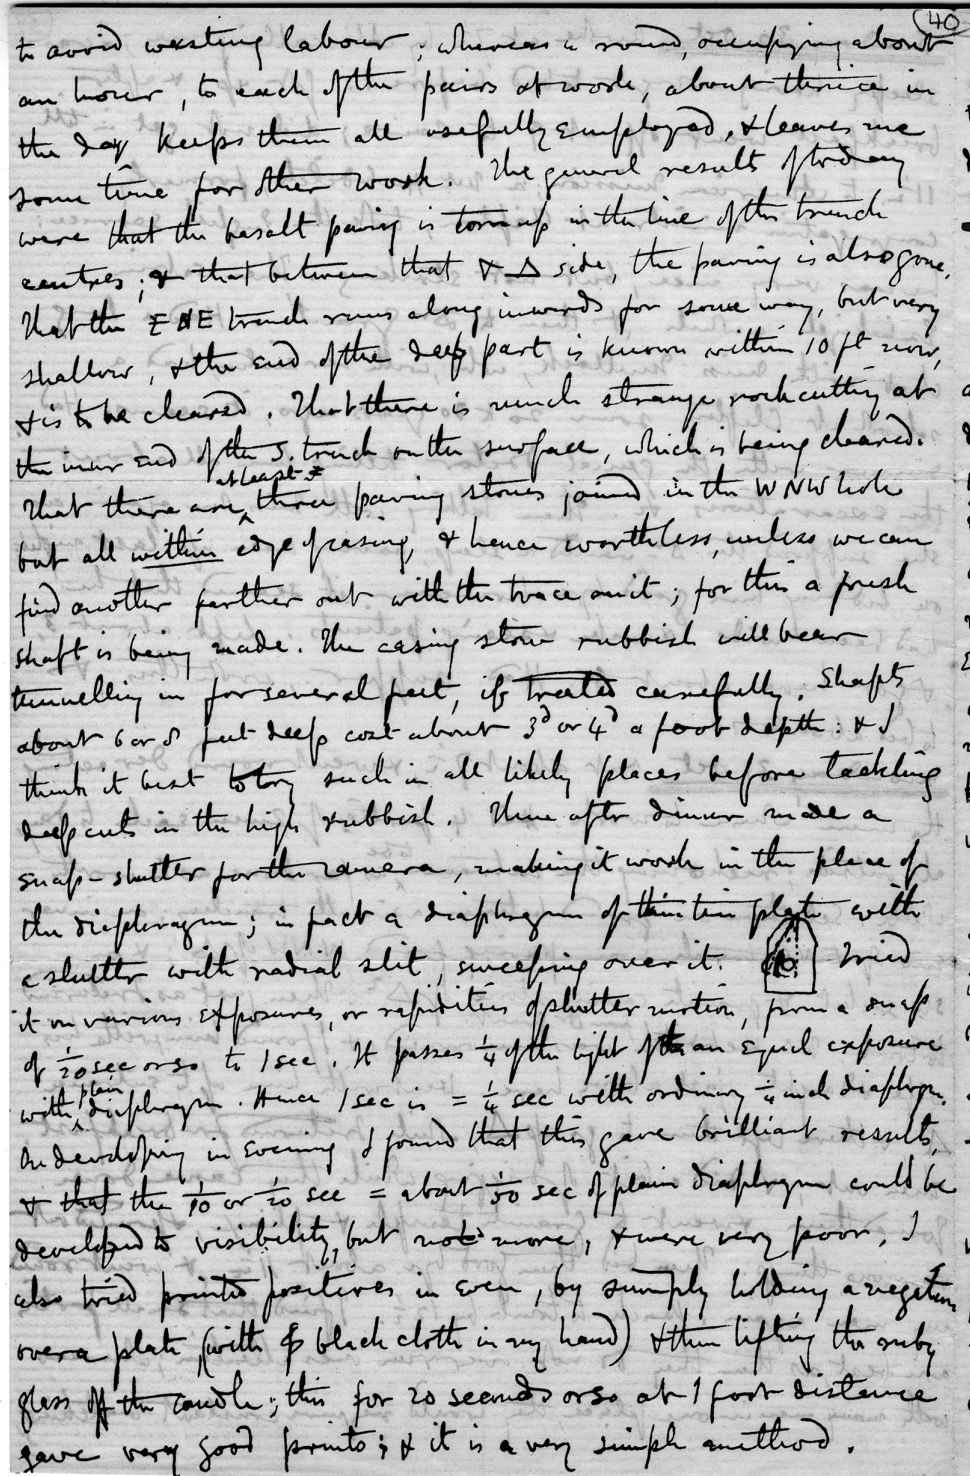 40
to avoid wasting labour; whereas a round, occupying about
an hour, to each of the pairs at work, about thrice in
the day keeps them all usefully employed, & leaves me
some time for other work. The general results of today
were that the basalt paving is torn up in the line of the trench
centres; & that between that & Δ side, the paving is also gone.
That the E NE trench runs along inwards for some way, but very
shallow, & the end of the deep part is known within 10 ft now,
& is to be cleared. That there is much strange rockcutting at
the inner end of the S. trench on the surface, which is being cleared.
at least
That there are three paving stones joined in the WNW hole
but all within edge of casing, & hence worthless, unless we can
find another farther out with the trace on it; for this a fresh
shaft is being made. The casing stone rubbish will bear
tunnelling in for several feet, if treated carefully. Shafts
about 6 or 8 feet deep cost about 3d or 4d a foot depth: & I
think it best to try such in all likely places before tackling
deep cuts in the high rubbish. Then after dinner made a
snap-shutter for the camera, making it work in the place of
the diaphragm; in fact a diaphragm of thin tin plate with
a shutter with radial slit, sweeping over it. Tried
it on various exposures, or rapidities of shutter motion, from a snap
of 1/20 sec or so to 1 sec. It passes 1/4 of the light of an equal exposure
plain
with diaphragm. Hence 1 sec is = 1/4 sec with ordinary 1/4 inch diaphrgm.
On developing in evening I found that this gave brilliant results,
& that the 1/10 or 1/20 sec = about 1/50 sec of plain diaphragm could be
developed to visibility, but not more, & were very poor. I
also tried printing positives in even, by simply holding a negative
over a plate, (with black cloth in my hand) & then lifting the ruby
glass off the candle; this for 20 seconds or so at 1 foot distance
gave very good prints; & it is a very simple method.